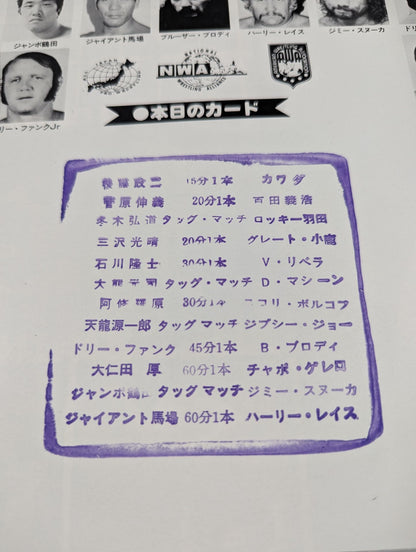 ジャンボ鶴田
ジャイアント馬場
ブルーザー・ブロディ
ハーリー・レイス
ジミー・スヌーカ
リー・ファンクJr
NATIONAL
NWA
WRESTLING ALLIANCE
●本日のカード
後藤政二 15分1本 カワダ
菅原伸義 20分1本 百田義浩
冬木弘道 タッグ・マッチ ロッキー羽田
三沢光晴 20分1本 グレート・小鹿
石川隆士 30分1本 V・リベラ
大熊元司 タッグ・マッチ D・マシーン
阿修羅原 30分1本 ニコリ・ボルコフ
天龍源一郎 タッグマッチ ジプシー・ジョー
ドリー・ファンク 45分1本 B・ブロディ
大仁田 厚 60分1本 チャボ・ゲレロ
ジャンボ鶴田 タッグマッチ ジミー・スヌーカ
ジャイアント馬場 60分1本 ハーリー・レイス